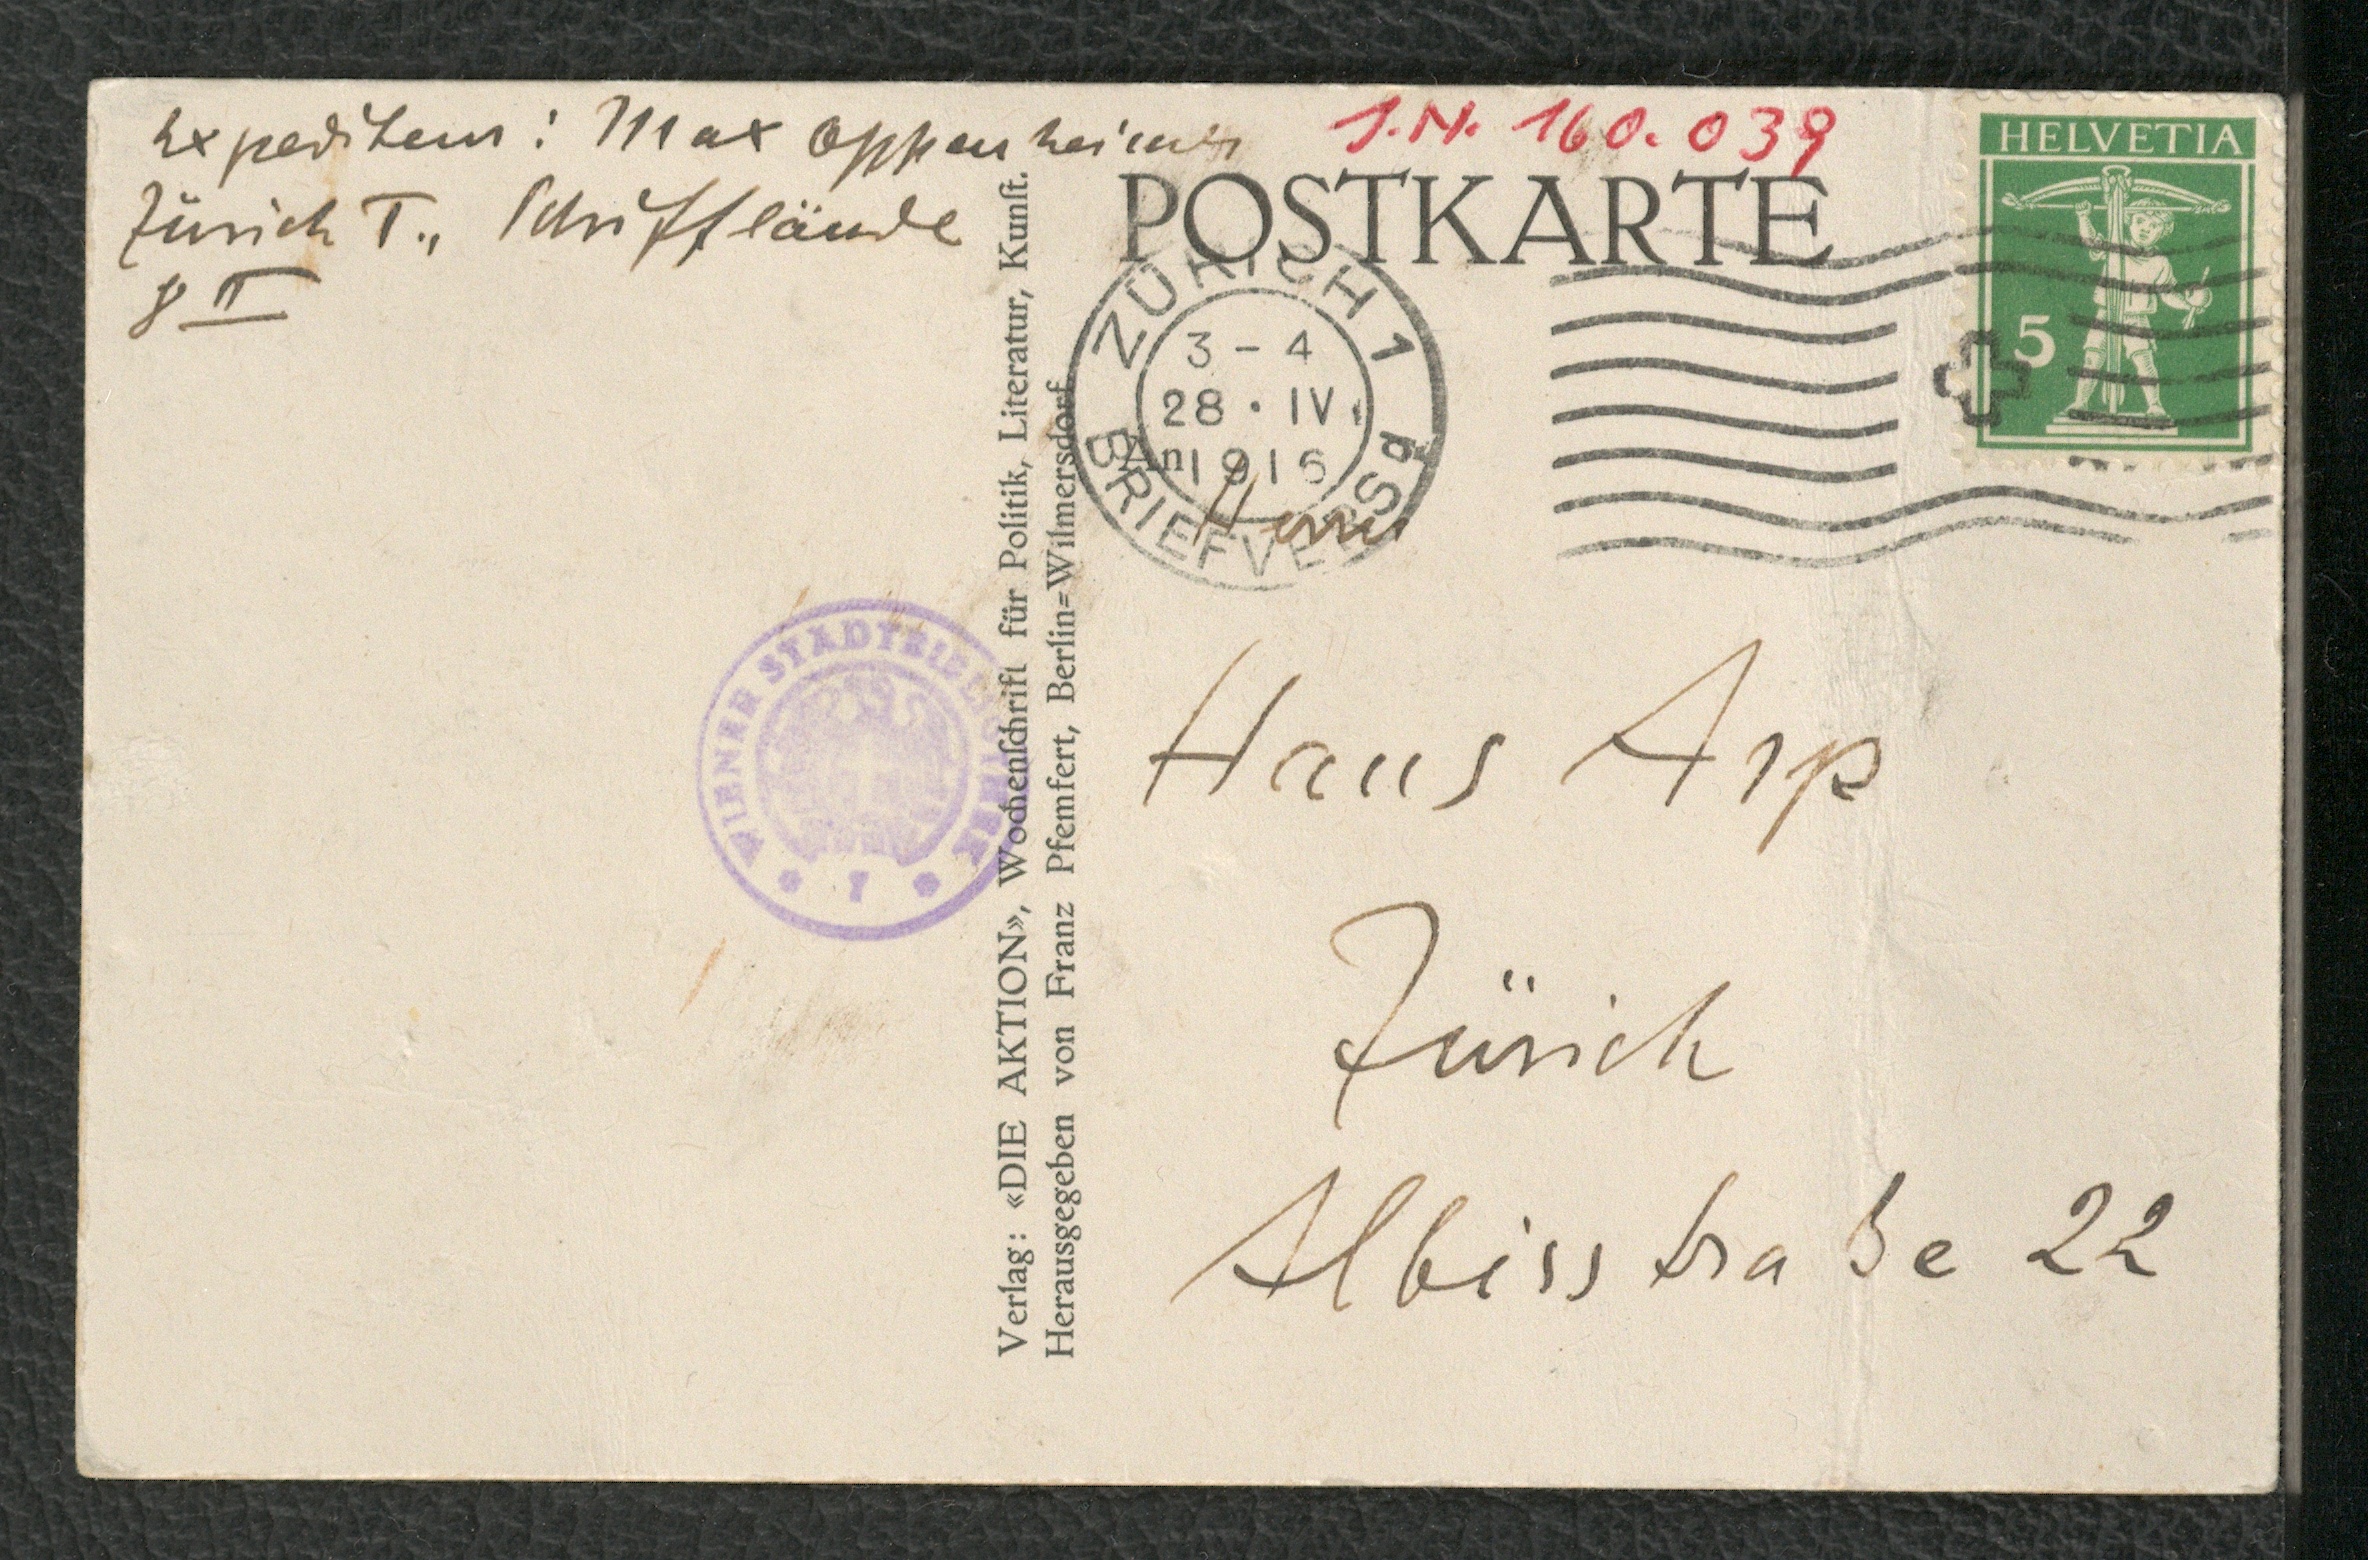 Expediteur: Max Oppenheimer
Zürich I., Schifflände
8 II
J.N. 160.039
POSTKARTE
HELVETIA
5
ZÜRICH 1
3-4
28·IV.
1916
BRIEFVERSd
An
Herrn
Hans Arp
Zürich
Albisstraße 22
WIENER STADTBIBLIOTHEK
* 7 *
Verlag: «DIE AKTION», Wochenschrift für Politik, Literatur, Kunst.
Herausgegeben von Franz Pfemfert, Berlin=Wilmersdorf